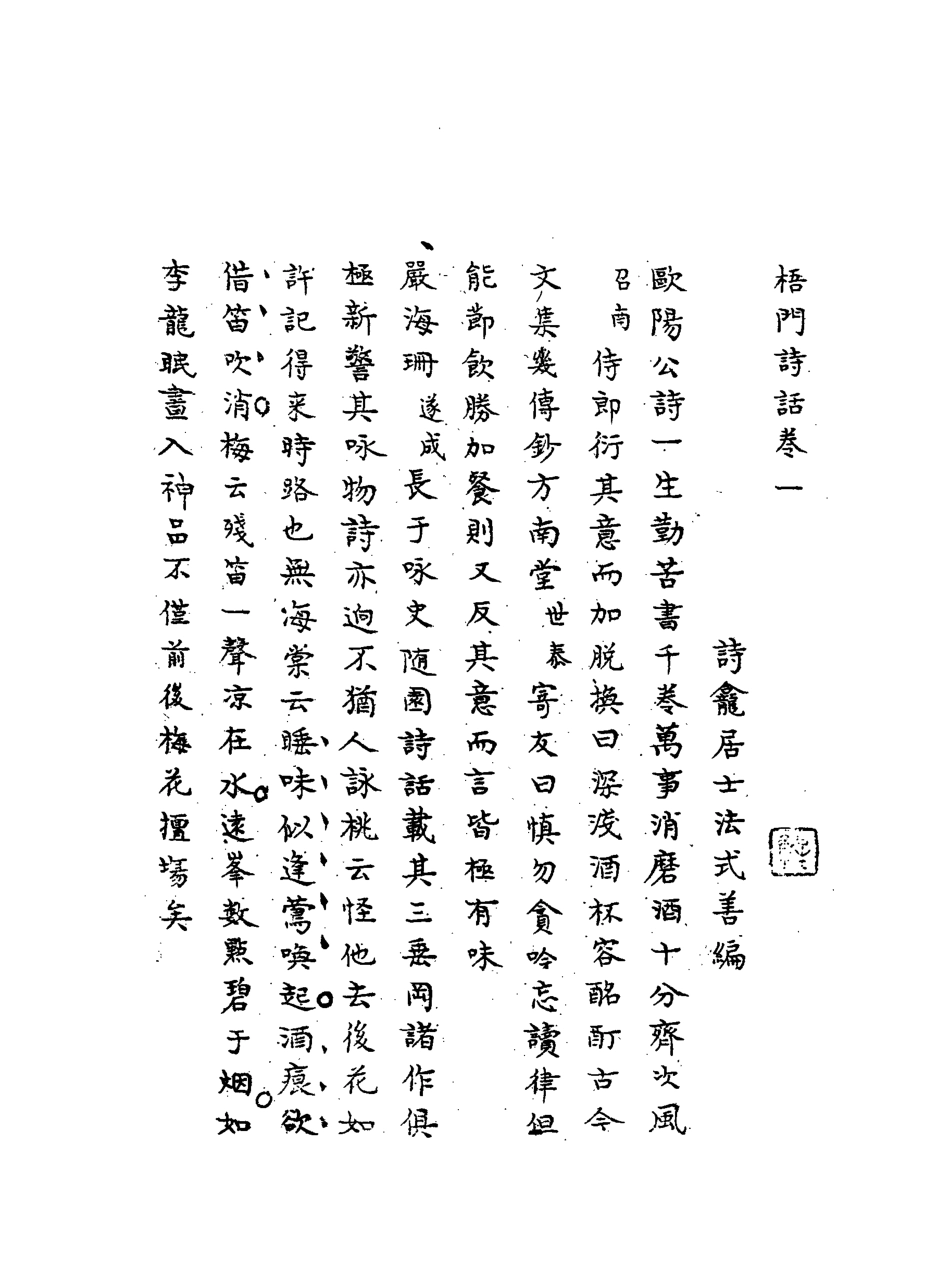 梧門詩話卷一
詩龕居士法式善編
歐陽公詩一生勤苦書千卷萬事消磨酒十分齊次風
召南侍郎衍其意而加脫換曰深淺酒杯容酩酊古今
文集幾傳鈔方南堂世泰寄友曰慎勿貪吟忘讀律但
能節飲勝加餐則又反其意而言皆極有味
嚴海珊遂成長于咏史随園詩話載其三垂岡諸作俱
極新警其咏物詩亦逈不猶人詠桃云怪他去後花如
許記得来時路也無海棠云睡味似逢鶯喚起酒痕欲
借笛吹消梅云殘笛一聲凉在水遠峯數點碧于烟如
李龍眠畫入神品不僅前後梅花擅塲矣